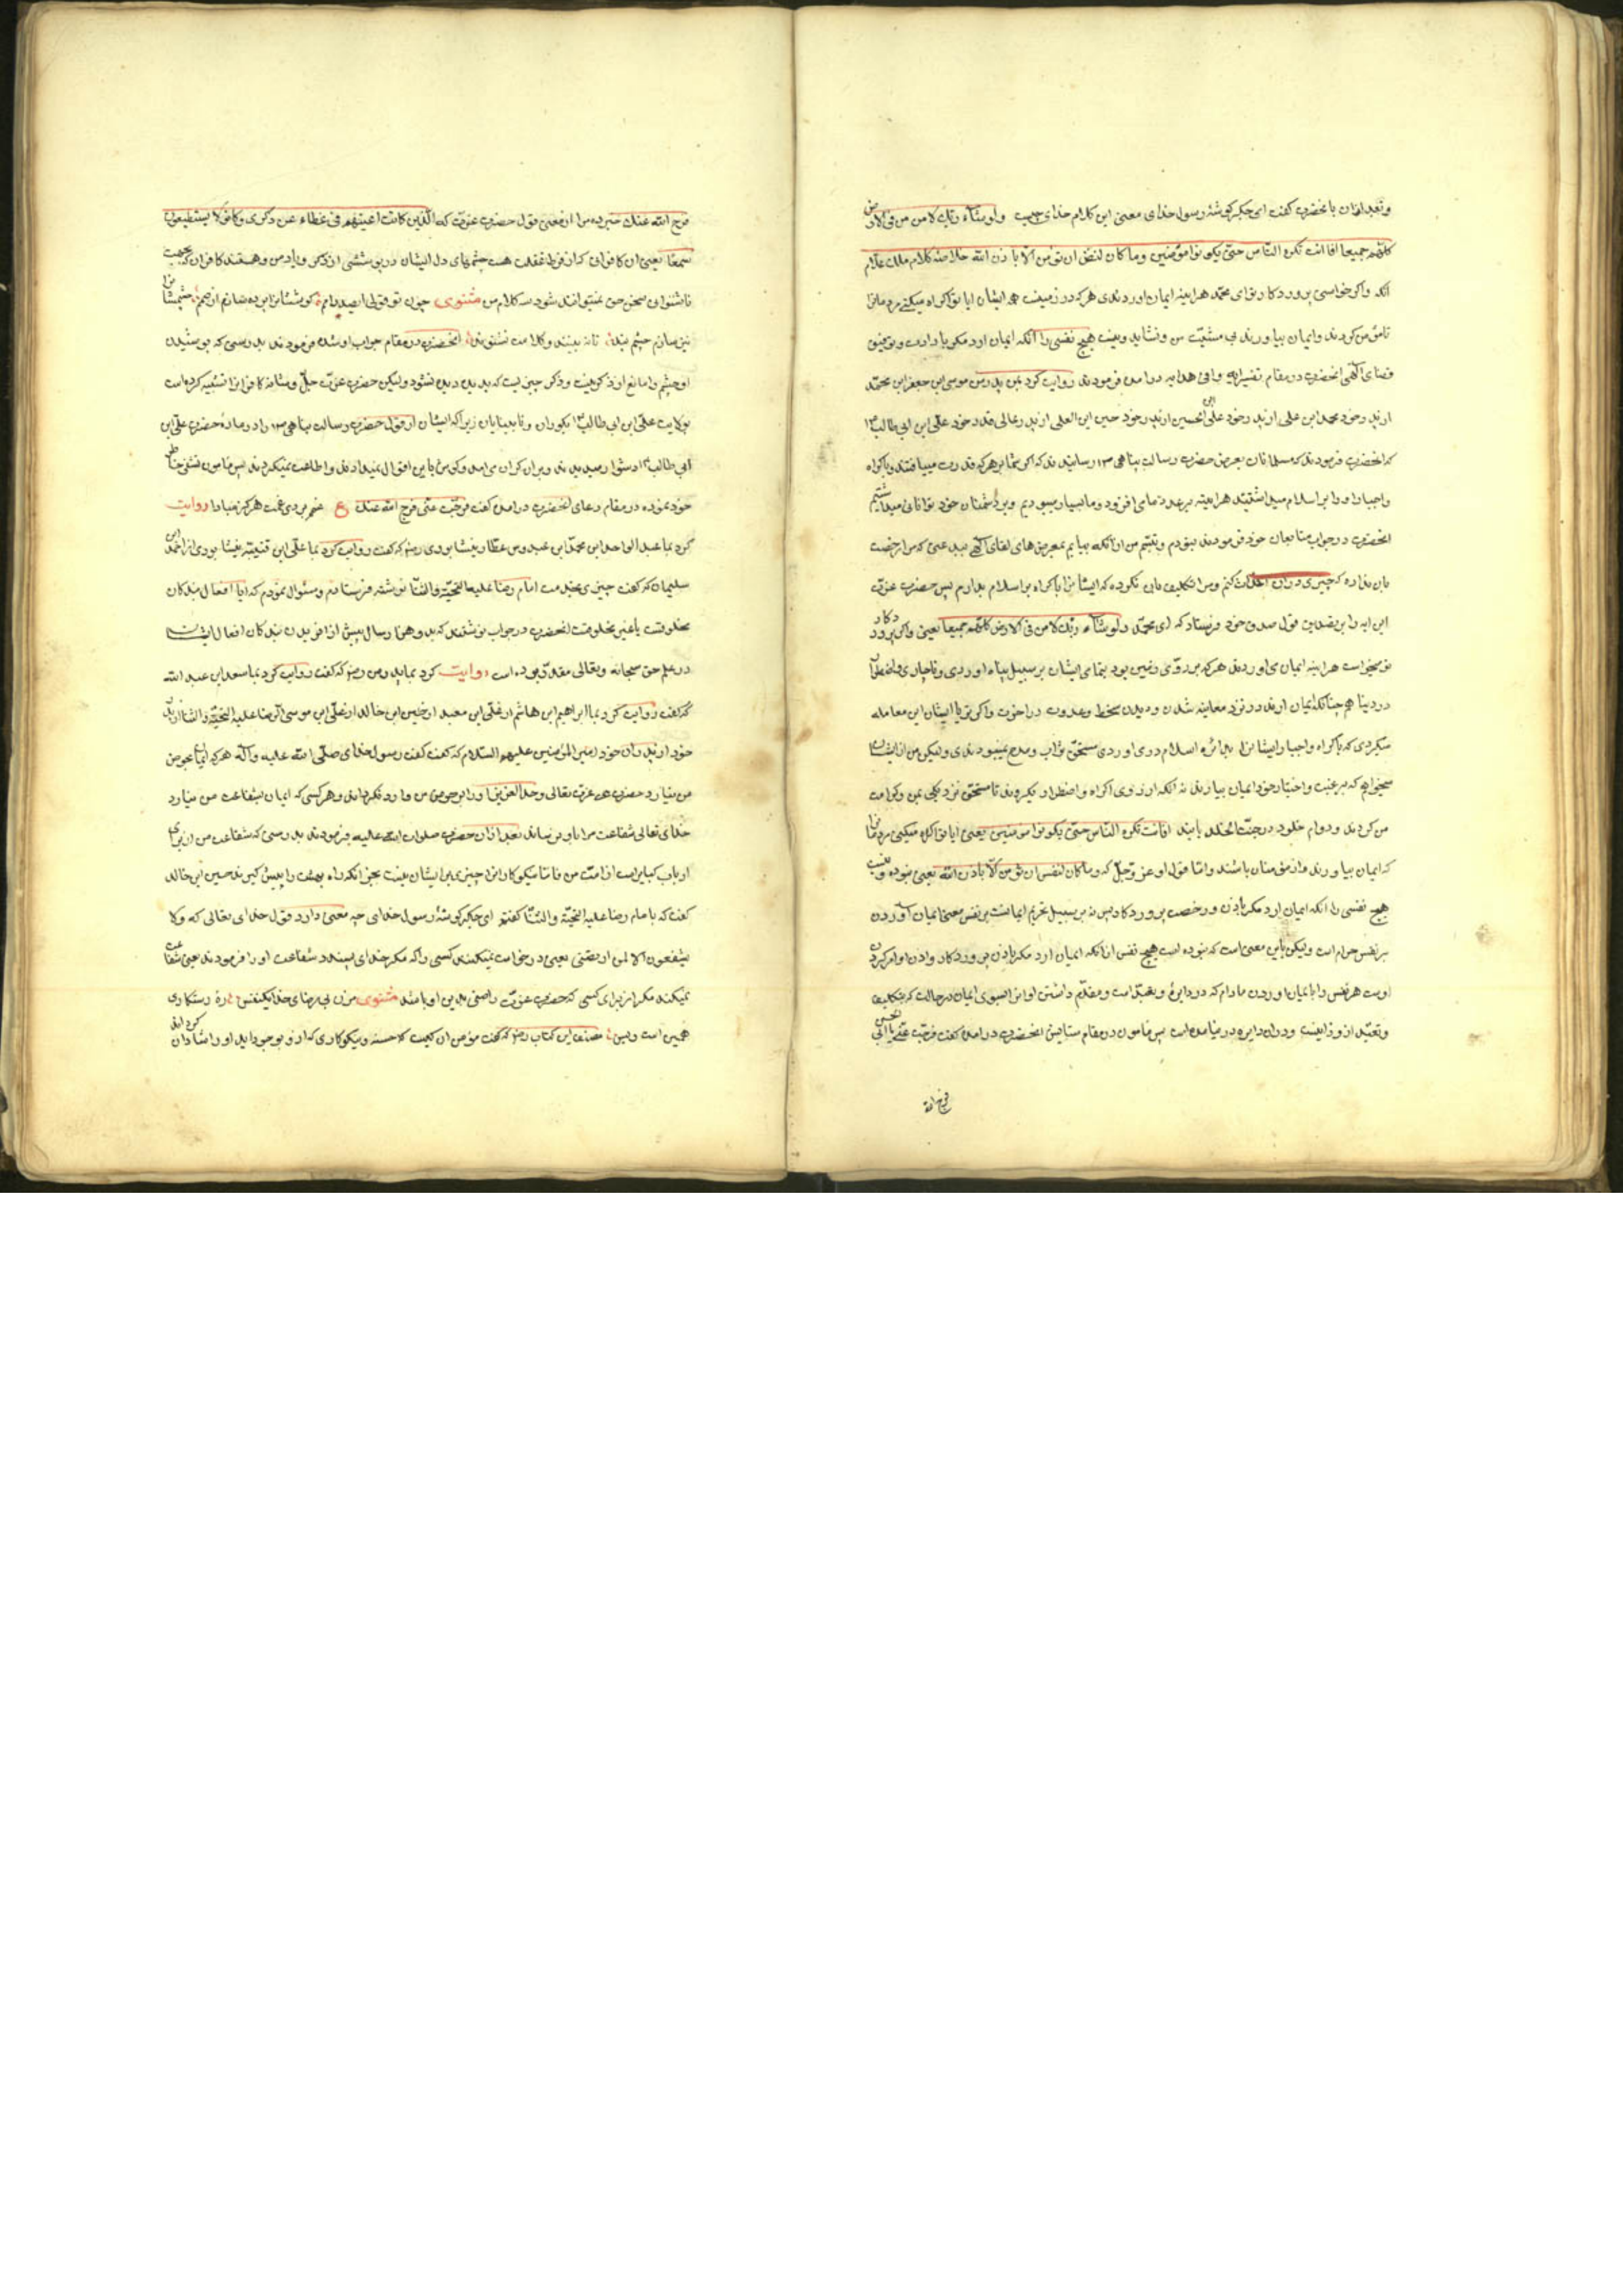 و بعد ازان بانحضرت گفت ای جگر گوشهٔ رسول خدای معنی این کلام خدای چیست ولو شاء ربک لامن من فی الارض
کلهم جمیعا افانت تکره الناس حتی یکونوا مؤمنین وما کان لنفس ان تؤمن الا باذن الله خلاصه کلام ملک علام
انکه واکر خواستی پروردکار تو ای محمد هر اینه ایمان اوردندی هر که در زمینست همه ایشان ایا تو اکراه میکنی مردمانرا
تا مؤمن کردند وایمان بیاورند بی مشیت من ونشاید ونیست هیچ نفسی را انکه ایمان ارد مکر بارادت وتوفیق
قضای الهی انحضرت در مقام تفسیر ایه وافی هدایه درامده فرمودند روایت کرد بمن پدرم موسی ابن جعفر ابن محمد
از پدر خود محمد ابن علی از پدر خود علی ابن الحسین از پدر خود حسین ابن العلی از پدر عالی قدر خود علی ابن ابی طالب
که انحضرت فرمودند که مسلمانان بعرض حضرت رسالت پناهی رسانیدند که اکر شما بر هر که قدرت مییافتند باکراه
واجبار او را بر اسلام میداشتید هر اینه بر عدد ما می افزود وما بسیار میبودیم وبر دشمنان خود توانائی میداشتیم
انحضرت در جواب متابعان خود فرمودند نبودم ونیستم من ازانکه بیایم بمعرض های لقای الهی ببدعتی که مرا رخصت
بان نداده که چیزی دران احداث کنم ومرا تکلیف بان نکرده که ایشانرا باکراه بر اسلام بدارم پس حضرت عزت
این ایه را بتصدیق قول صدق خود فرستاد که ای محمد ولو شاء ربک لامن فی الارض کلهم جمیعا یعنی واکر پروردکار
تو میخواست هر اینه ایمان می اوردند هر که بر روی زمین بود بتمامی ایشان بر سبیل پناه اوردی وناچاری واضطرار
در دنیا همچنانکه ایمان ارند در نزد معاینه شدن ودیدن سخط وعذوبت در اخرت واکر تو با ایشان این معامله
میکردی که باکراه واجبار ایشانرا بدائره اسلام در می اوردی مستحق ثواب ومدح نمیبودندی ولیکن من از ایشان
میخواهم که برغبت واختیار خود ایمان بیارند نه انکه از روی اکراه واضطرار بکروند تا مستحق نزدیکی بمن وکرامت
من کردند ودوام خلود در جنت الخلد یابند افانت تکره الناس حتی یکونوا مؤمنین یعنی ایا تو اکراه میکنی مردمانرا
که ایمان بیاورند واز مؤمنان باشند واما قول او عز وجل که وما کان لنفس ان تؤمن الا باذن الله یعنی نبوده ونیست
هیچ نفسی را انکه ایمان ارد مکر باذن ورخصت پروردکار پس نه بر سبیل تحریم ایمانست بر نفس یعنی ایمان آوردن
بر نفس حرام است ولیکن باین معنی است که نبوده است هیچ نفس ازانکه ایمان ارد مکر باذن پروردکار واذن او امر کردن
اوست هر نفس را بایمان اوردن مادام که در دایرهٔ تعبد است ومقدم داشتن او انرا بسوی ایمان در حالت که تکلیف
وتعبد ازو زایلست ودران دایره در نیامده است پس مامون در مقام ستایش انحضرت درامده گفت فرجت عنی یا ابی الحسن
فرج الله
فرج الله عنک خبر ده مرا از معنی قول حضرت عزت که الذین کانت اعینهم فی غطاء عن ذکری وکانوا لا یستطیعون
سمعا یعنی ان کافرانی که از فرط غفلت هست چشمهای دل ایشان در پوششی از ذکر ویاد من وهستند کافران که بجهت
ناشنوایی سخن حق نمیتوانند شنود کلام من مثنوی چون تو قولی ایصد دامم کوششانرا برده ضانم از صمم چشمشانرا
نیز سازم چشم بند تا نه بینند وکلامت نشنوند انحضرت در مقام جواب او شده فرمودند بدرستی که پوشیدن
او چشم را مانع از ذکر نیست وذکر چیزیست که بدیدن دیده نشود ولیکن حضرت عزت جل وشانه کافرانرا تشبیه کرده است
بولایت علی ابن ابی طالب بکوران ونابینایان زیرا که ایشان از قول حضرت رسالت پناهی را در مادهٔ حضرت علی ابن
ابی طالب دشوار میدیدند وبر ان کران می امد وکوش باین اقوال نمیدادند واطاعت نمیکردند پس مامون تشفی خاطر
خود نموده در مقام دعای انحضرت درامده گفت فرجت عنی فرج الله عنک ع غم بردی غمت هرکز مبادا روایت
کرد بما عبد الواحد ابن محمد ابن عبدوس عطار نیشابوری رض که گفت روایت کرد بما علی ابن قتیبه نیشابوری از احمد ابن
سلیمان که گفت چیزی بخدمت امام رضا علیه التحیة والثنا نوشته فرستادم وسئوال نمودم که ایا افعال بندکان
مخلوقست یا غیر مخلوقست انحضرت در جواب نوشتند که بدو هزار سال پیش از افریدن بندکان افعال ایشان
در علم حق سبحانه وتعالی مقدر بوده است روایت کرد بما پدر من رض که گفت روایت کرد بما سعد ابن عبد الله
که گفت روایت کرد بما ابراهیم ابن هاشم از علی ابن معبد از حسین ابن خالد از علی ابن موسی الرضا علیه التحیة والثنا از پدر
خود از پدران خود از امیر المؤمنین علیهم السلام که گفت گفت رسول خدای صلی الله علیه وآله هر که ایمان بحوض
من نیارد حضرت عزت تعالی وجل العزیز او را بر حوض من وارد نکرداند وهر کسی که ایمان بشفاعت من نیارد
خدای تعالی شفاعت مرا باو نرساند بعد ازان حضرت صلوات الله علیه فرمودند بدرستی که شفاعت من از برای
ارباب کبایر است از امت من فاما نیکوکارانرا چیزی بر ایشان نیست بجز انکه راه بهشت را پیش کیرند حسین ابن خالد
گفت که بامام رضا علیه التحیة والثنا گفتم ای جگر گوشهٔ رسول خدای چه معنی دارد قول خدای تعالی که ولا
یشفعون الا لمن ارتضی یعنی درخواست نمیکنند کسی را که مکر خدای پسندد شفاعت او را فرمودند یعنی شفاعت
نمیکنند مکر از برای کسی که حضرت عزت راضی بدین او باشد مثنوی مزن بی رضای خدا یکنفس ره رستکاری
همین است وبس مصنف این کتاب رض که گفت مؤمن ان کیست که حسنه ونیکوکاری که ازو بوجود اید او را شادان کرداند